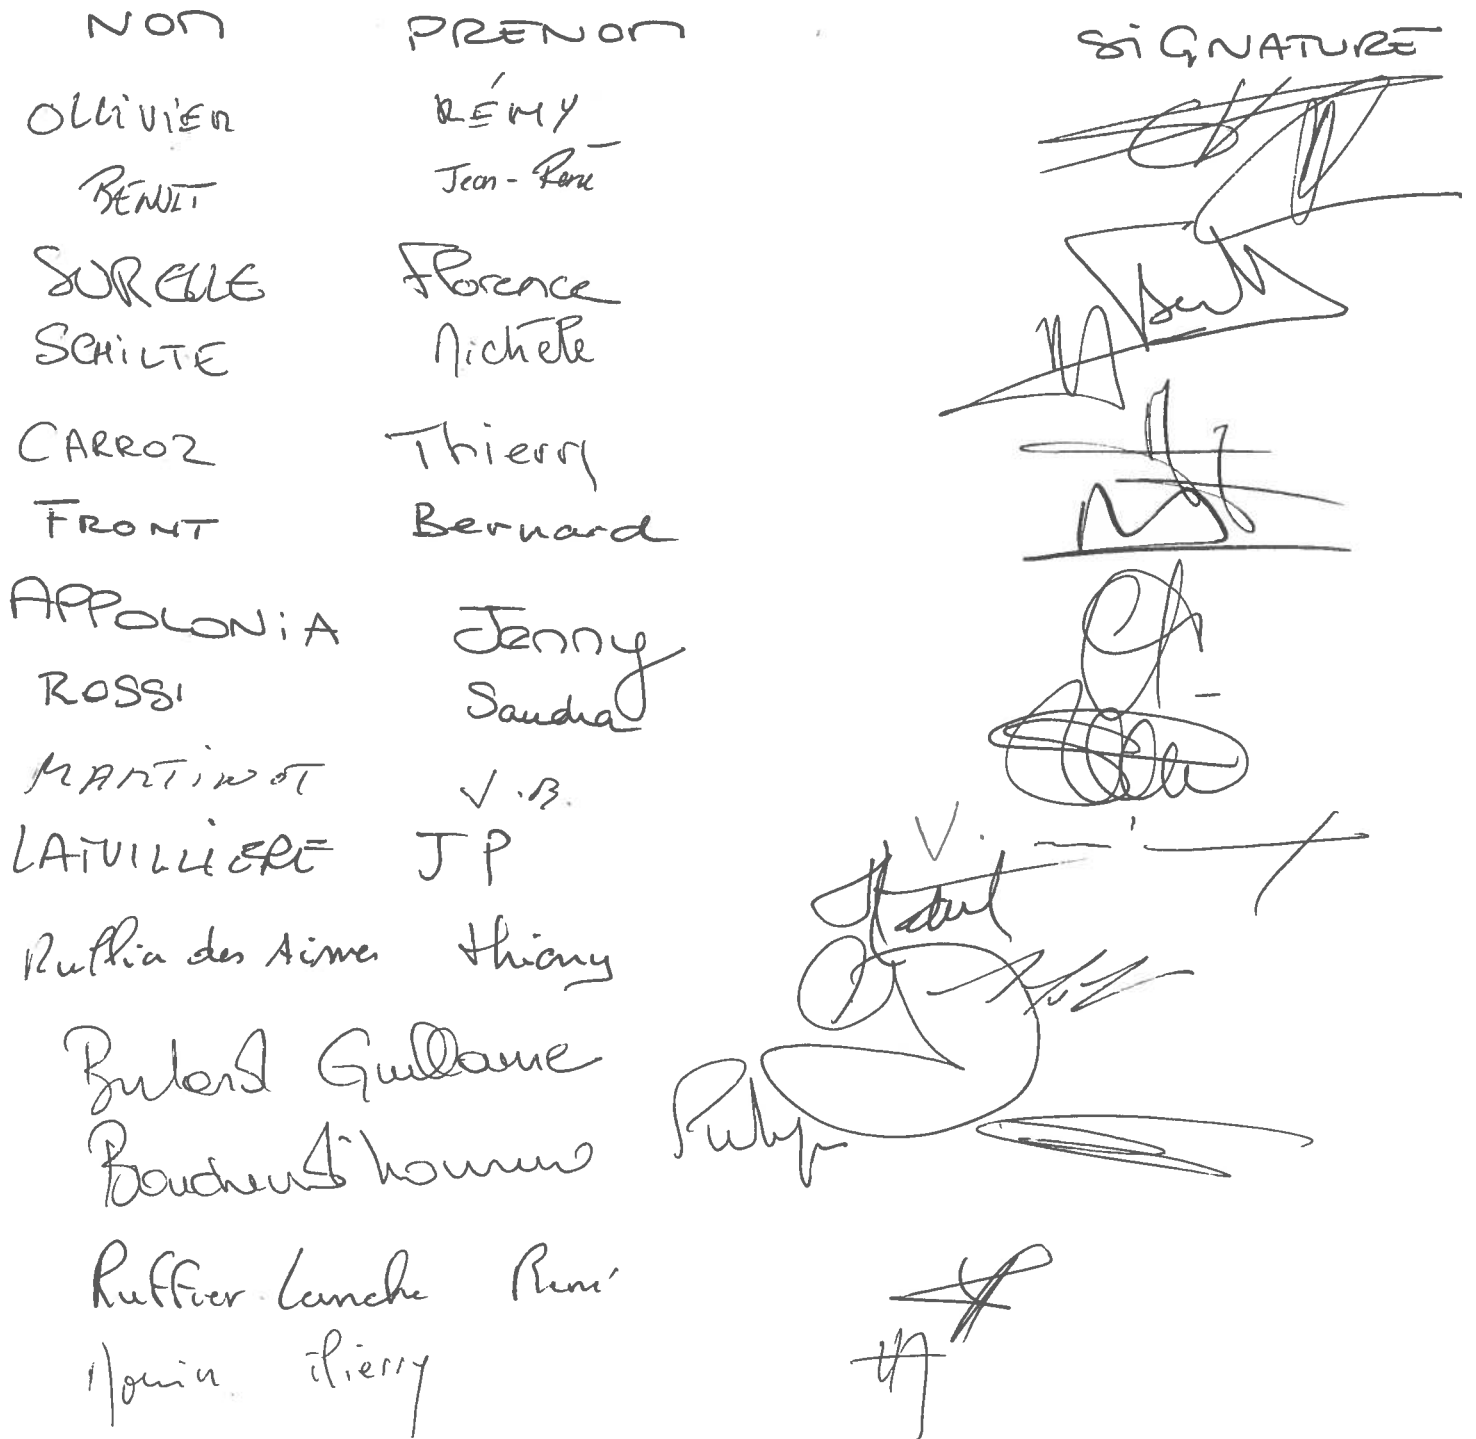 NOM PRENOM SIGNATURE
OLLIVIER RÉMY
BENOIT Jean-René
SURELLE Florence
SCHILTE Michèle
CARROZ Thierry
FRONT Bernard
APPOLONIA Jenny
ROSSI Sandra
MARTINOT V.B.
LATUILLIERE JP
Ruffier des Aimes Thierry
Guillaume
Ruffier Lanche René
Thierry